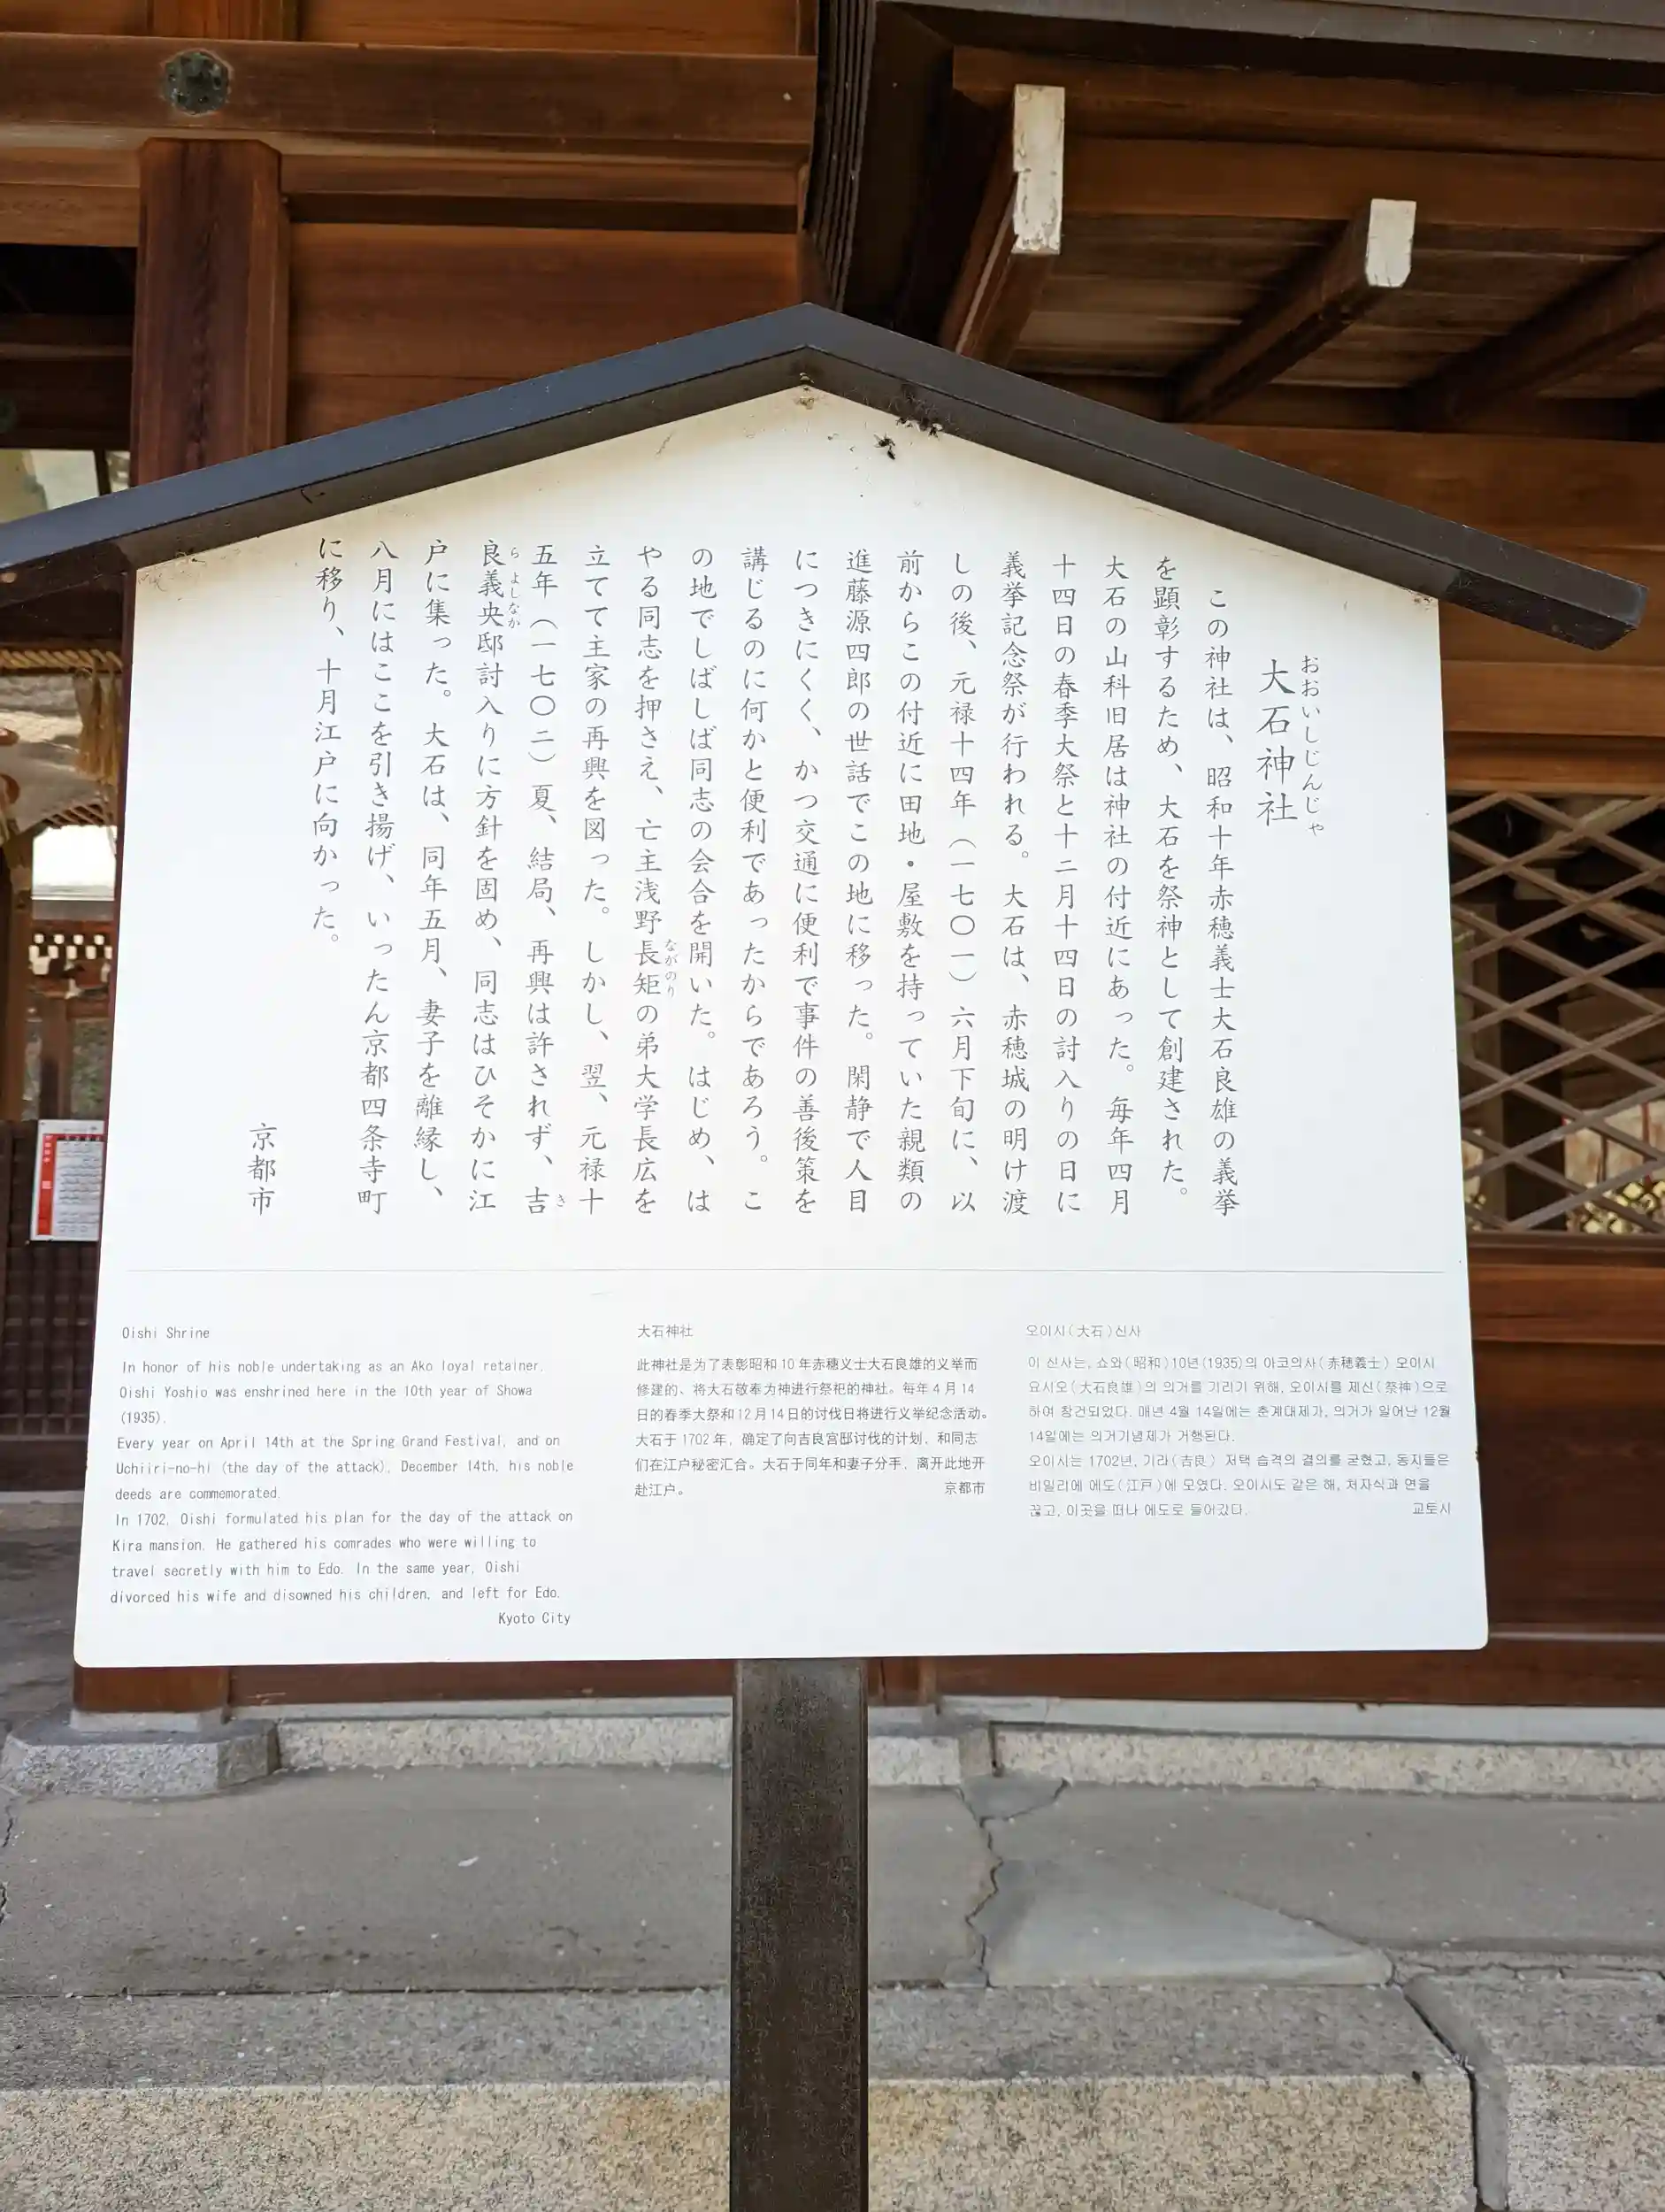 大石神社
おおいしじんじゃ
この神社は、昭和十年赤穂義士大石良雄の義挙
を顕彰するため、大石を祭神として創建された。
大石の山科旧居は神社の付近にあった。毎年四月
十四日の春季大祭と十二月十四日の討入りの日に
義挙記念祭が行われる。大石は、赤穂城の明け渡
しの後、元禄十四年（一七〇一）六月下旬に、以
前からこの付近に田地・屋敷を持っていた親類の
進藤源四郎の世話でこの地に移った。閑静で人目
につきにくく、かつ交通に便利で事件の善後策を
講じるのに何かと便利であったからであろう。こ
の地でしばしば同志の会合を開いた。はじめ、は
やる同志を押さえ、亡主浅野長矩の弟大学長広を
ながのり
立てて主家の再興を図った。しかし、翌、元禄十
五年（一七〇二）夏、結局、再興は許されず、吉
き
良義央邸討入りに方針を固め、同志はひそかに江
ら よしなか
戸に集った。大石は、同年五月、妻子を離縁し、
八月にはここを引き揚げ、いったん京都四条寺町
に移り、十月江戸に向かった。
京都市
Oishi Shrine
In honor of his noble undertaking as an Ako loyal retainer,
Oishi Yoshio was enshrined here in the 10th year of Showa
(1935).
Every year on April 14th at the Spring Grand Festival, and on
Uchiiri-no-hi (the day of the attack), December 14th, his noble
deeds are commemorated.
In 1702, Oishi formulated his plan for the day of the attack on
Kira mansion. He gathered his comrades who were willing to
travel secretly with him to Edo. In the same year, Oishi
divorced his wife and disowned his children, and left for Edo.
Kyoto City
大石神社
此神社是为了表彰昭和10年赤穗义士大石良雄的义举而
修建的、将大石敬奉为神进行祭祀的神社。每年4月14
日的春季大祭和12月14日的讨伐日将进行义举纪念活动。
大石于1702年，确定了向吉良宫邸讨伐的计划，和同志
们在江户秘密汇合。大石于同年和妻子分手，离开此地开
赴江户。 京都市
오이시(大石)신사
이 신사는, 쇼와(昭和)10년(1935)의 아코의사(赤穂義士) 오이시
요시오(大石良雄)의 의거를 기리기 위해, 오이시를 제신(祭神)으로
하여 창건되었다. 매년 4월 14일에는 춘계대제가, 의거가 일어난 12월
14일에는 의거기념제가 거행된다.
오이시는 1702년, 기라(吉良) 저택 습격의 결의를 굳혔고, 동지들은
비밀리에 에도(江戸)에 모였다. 오이시도 같은 해, 처자식과 연을
끊고, 이곳을 떠나 에도로 들어갔다. 교토시